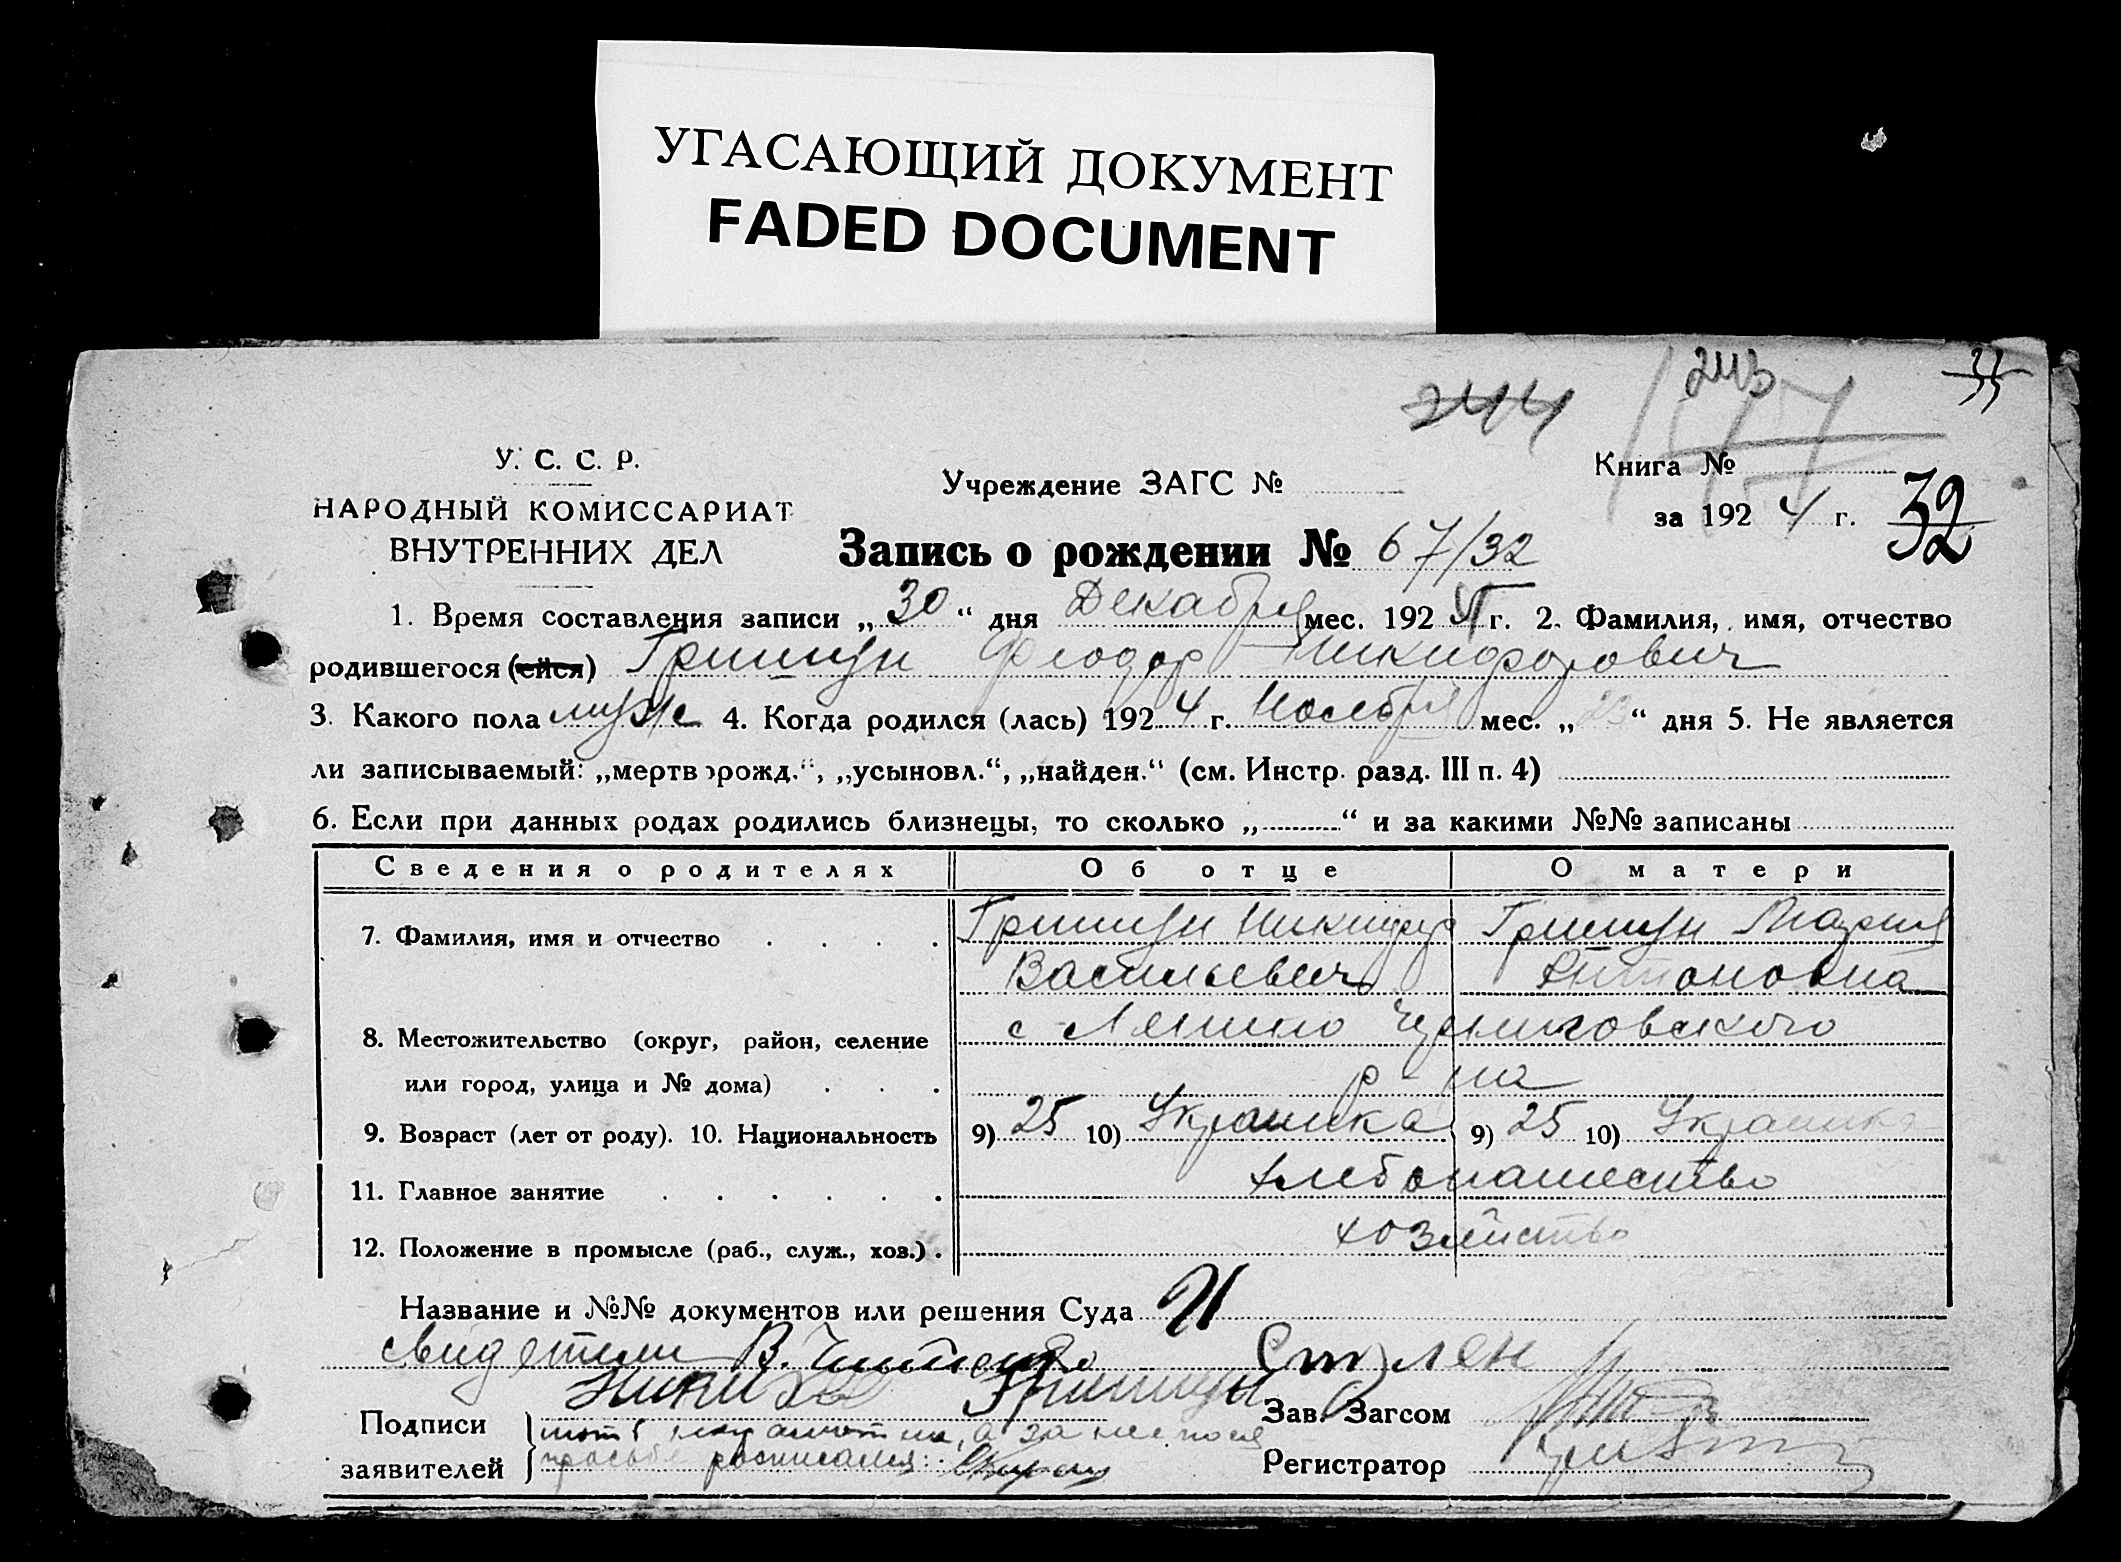 УГАСАЮЩИЙ ДОКУМЕНТ
FADED DOCUMENT
244
243
33
У. С. С. Р.
НАРОДНЫЙ КОМИССАРИАТ
ВНУТРЕННИХ ДЕЛ
Учреждение ЗАГС №
Книга №
за 1924 г.
32
Запись о рождении № 67/32
1. Время составления записи „30“ дня Декабря мес. 192 г. 2. Фамилия, имя, отчество
родившегося (ейся) Гришун Феодор Никифорович
3. Какого пола муж 4. Когда родился (лась) 1924 г. Ноября мес. „23“ дня 5. Не является
ли записываемый: „мертворожд.“, „усыновл.“, „найден.“ (см. Инстр. разд. III п. 4)
6. Если при данных родах родились близнецы, то сколько „ “ и за какими №№ записаны
Сведения о родителях Об отце О матери
7. Фамилия, имя и отчество Гришун Никифор Гришун Мария
Васильевич Антоновна
8. Местожительство (округ, район, селение с Черниговского
или город, улица и № дома) р-на
9. Возраст (лет от роду). 10. Национальность 9) 25 10) Украинка 9) 25 10) Украинка
11. Главное занятие хлебопашество
12. Положение в промысле (раб., служ., хоз.) хозяйство
Название и №№ документов или решения Суда
свидетели В.
Гришун
Подписи
заявителей
а за нее по ея
просьбе расписался:
Зав. Загсом
Регистратор